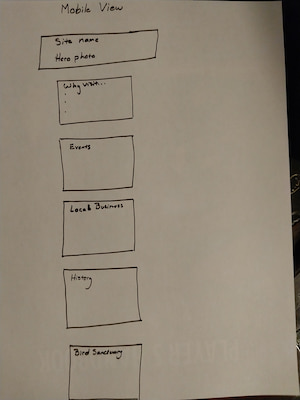 Mobile View
Site name
Hero photo
Why visit...
Events
Local Business
History
Bird Sanctuary